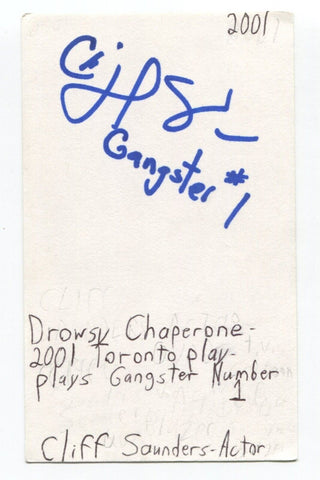 2001
Gangster #1
Drowsy Chaperone-
2001 Toronto play-
plays Gangster Number
1
Cliff Saunders-Actor